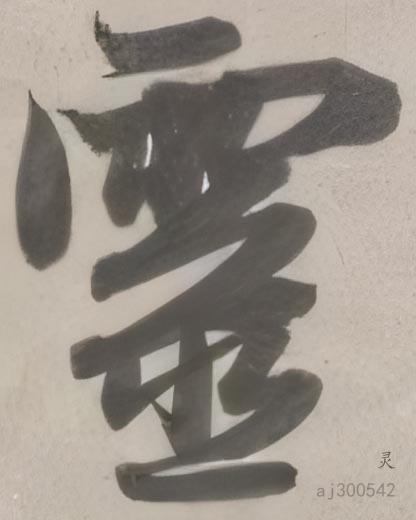 靈
灵
aj300542